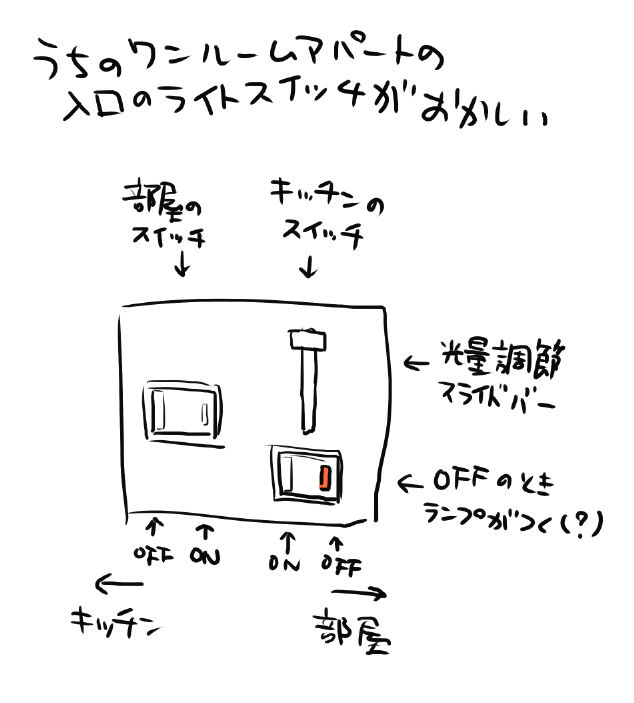 うちのワンルームアパートの
入口のライトスイッチがおかしい
部屋の
スイッチ
↓
キッチンの
スイッチ
↓
← 光量調節
スライドバー
← OFFのとき
ランプがつく(?)
↑ ↑ ↑ ↑
OFF ON ON OFF
← →
キッチン 部屋